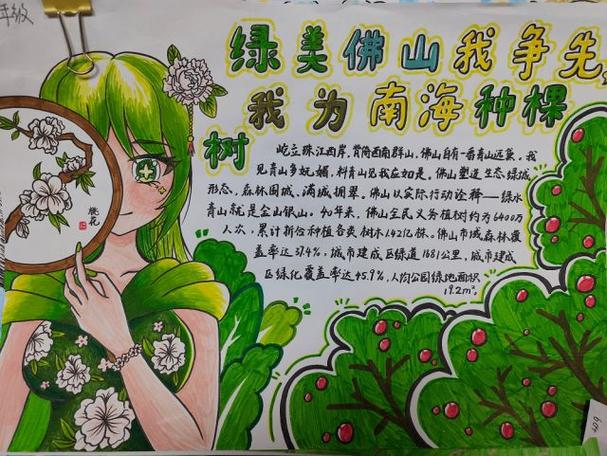 年级
绿美佛山我争先,
我为南海种棵
树
屹立珠江西岸,背倚西南群山,佛山自有一番青山远黛。我
见青山多妩媚,料青山见我应如是。佛山塑造生态绿城
形态,森林围城、满城拥翠。佛山以实际行动诠释——绿水
青山就是金山银山。40年来,佛山全民义务植树约为6400万
人次,累计新份种植各类树木1.42亿株。佛山市域森林覆
盖率达37.4%,城市建成区绿道1681公里,城市建成
区绿化覆盖率达45.9%,人均公园绿地面积
19.2m².
桃
花
409